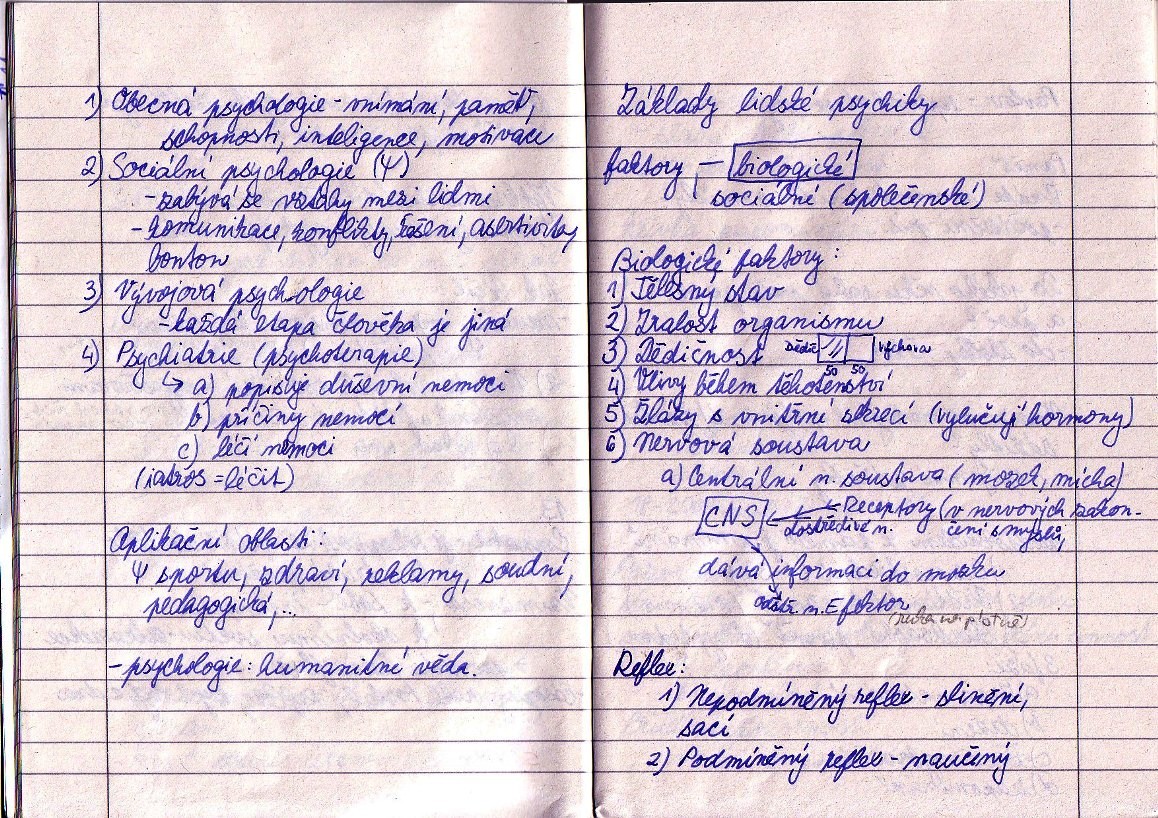 1) Obecná psychologie - vnímání, paměť,
schopnosti, inteligence, motivace
2) Sociální psychologie (Ψ)
- zabývá se vztahy mezi lidmi
- komunikace, konflikty, řešení, asertivita,
bonton
3) Vývojová psychologie
- každá etapa člověka je jiná
4) Psychiatrie (psychoterapie)
↳ a) popisuje duševní nemoci
b) příčiny nemocí
c) léčí nemoci
(iatros = léčit)
Aplikační oblasti:
Ψ sportu, zdraví, reklamy, soudní,
pedagogická,...
- psychologie: humanitní věda.
Základy lidské psychiky
faktory - biologické
sociální (společenské)
Biologické faktory:
1) Tělesný stav
2) Zralost organismu
3) Dědičnost Dědič. výchova
50 50
4) Vlivy během těhotenství
5) Žlázy s vnitřní sekrecí (vylučují hormony)
6) Nervová soustava
a) Centrální n. soustava (mozek, mícha)
CNS ← Receptory (v nervových zakon-
dostředivé n. čení smyslů,
dává informaci do mozku
odstř. n. Efektor
(ruka na plotně)
Reflex:
1) Nepodmíněný reflex - slinění,
sací
2) Podmíněný reflex - naučený